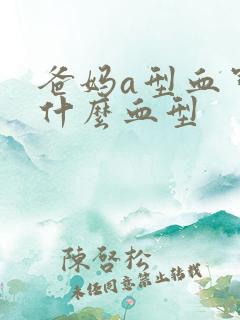 爸妈a型血
什麼血型
陳啓松
未经同意禁止转载